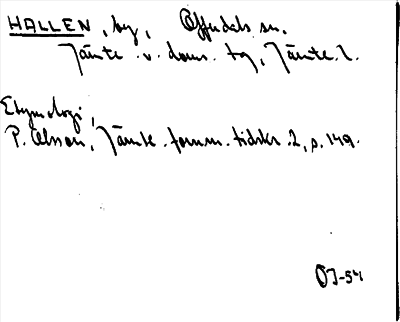 HALLEN, by, Offerdals sn.
Jämtl. v. doms. tg, Jämtl. l.
Etymologi,
P. Olsson, Jämtl. fornm. tidskr. 2, s. 149.
OJ-54